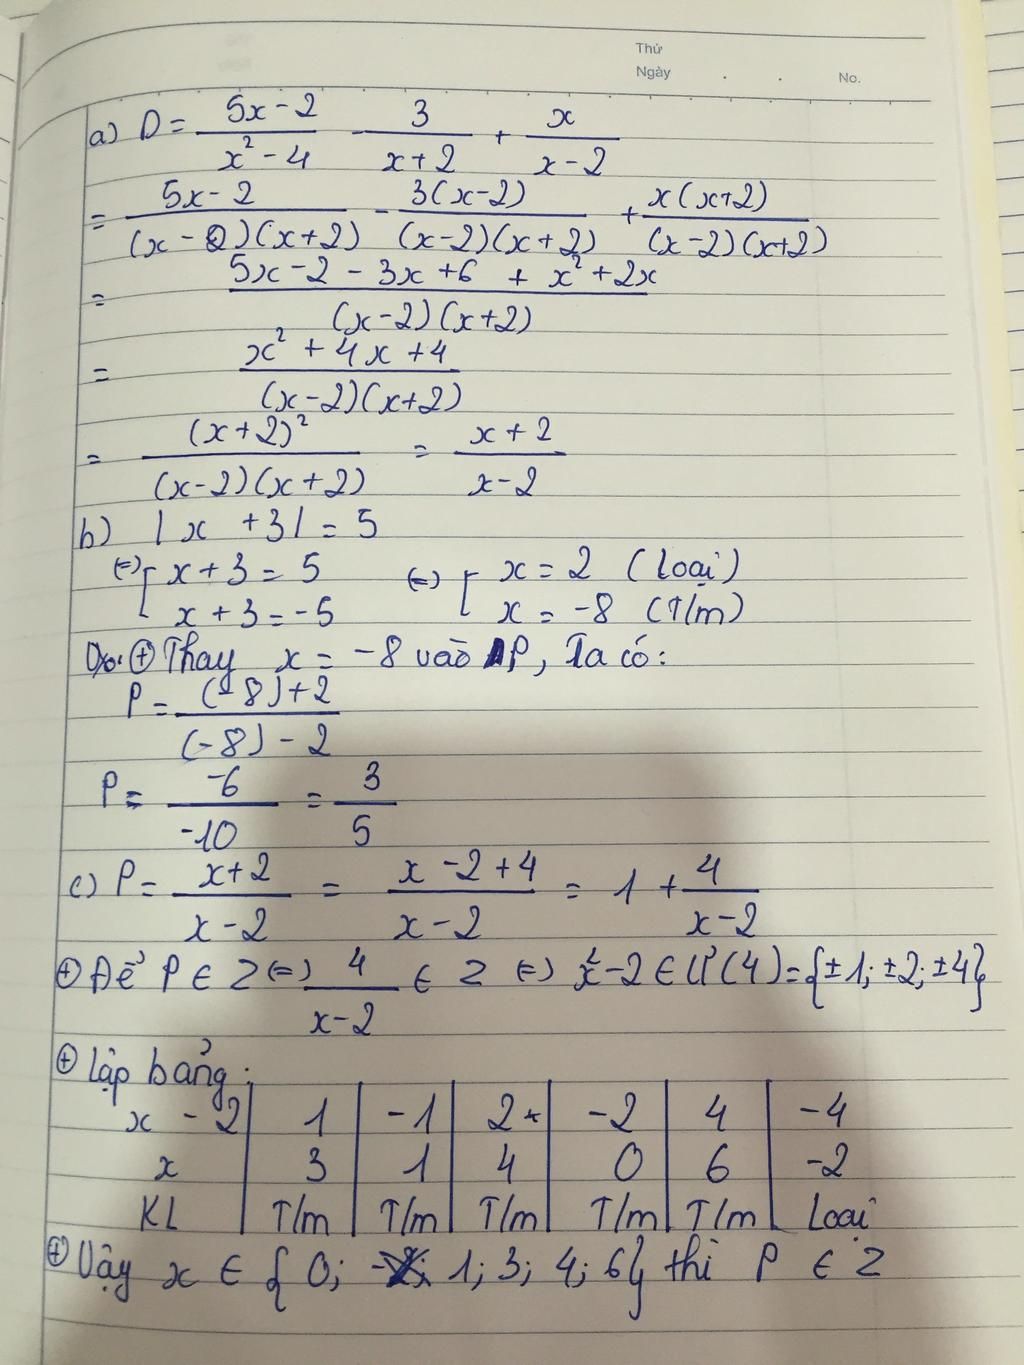 Thứ
Ngày . . No.
a) D = (5x - 2)/(x² - 4) - 3/(x + 2) + x/(x - 2)
= (5x - 2)/((x - 2)(x + 2)) - 3(x - 2)/((x - 2)(x + 2)) + x(x + 2)/((x - 2)(x + 2))
= (5x - 2 - 3x + 6 + x² + 2x)/((x - 2)(x + 2))
= (x² + 4x + 4)/((x - 2)(x + 2))
= (x + 2)²/((x - 2)(x + 2)) = (x + 2)/(x - 2)
b) |x + 3| = 5
(=) [ x + 3 = 5 (=) [ x = 2 (loại)
x + 3 = -5 x = -8 (T/m)
⊕ Thay x = -8 vào P, Ta có:
P = ((-8) + 2)/((-8) - 2)
P = -6/-10 = 3/5
c) P = (x + 2)/(x - 2) = (x - 2 + 4)/(x - 2) = 1 + 4/(x - 2)
⊕ Để P ∈ Z (=) 4/(x - 2) ∈ Z (=) x - 2 ∈ Ư(4) = {±1; ±2; ±4}
⊕ lập bảng:
x - 2 | 1 | -1 | 2 | -2 | 4 | -4
x | 3 | 1 | 4 | 0 | 6 | -2
KL | T/m | T/m | T/m | T/m | T/m | Loại
⊕ Vậy x ∈ {0; 1; 3; 4; 6} thì P ∈ Z